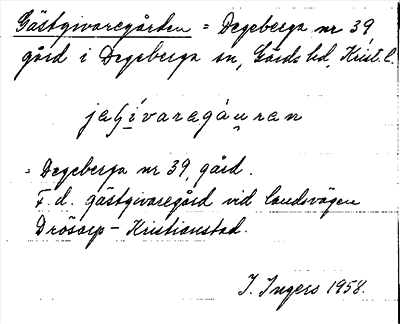 Gästgivaregården = Degeberga nr 39
gård i Degeberga sn, Gärds hd, Krist. l.
jaʃívaragáu̯ran
= Degeberga nr 39, gård.
F. d. gästgivaregård vid landsvägen
Drösarp - Kristianstad.
I. Ingers 1958.